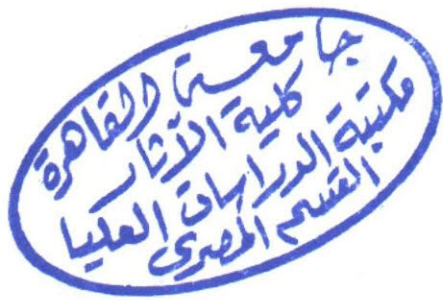 جامعة القاهرة
كلية الآثار
مكتبة الدراسات العليا
القسم المصرى